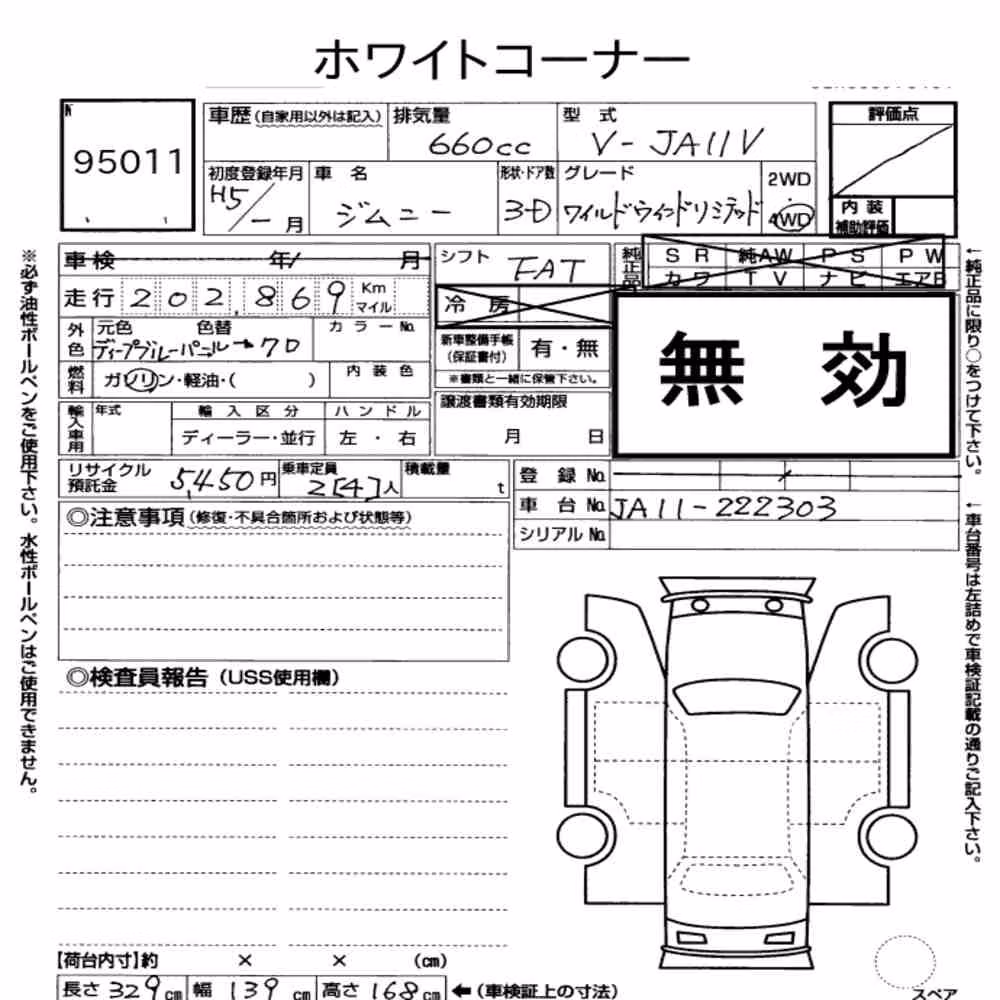 ホワイトコーナー
N
95011
車歴(自家用以外は記入)
排気量
660cc
型式
V-JA11V
評価点
初度登録年月
H5/－月
車名
ジムニー
形状・ドア数
3-D
グレード
ワイルドウインドリミテッド
2WD
・
4WD
内装
補助評価
車検 年 月
シフト
FAT
純正品
SR 純AW PS PW
カワ TV ナビ エアB
走行 202,869 Km
マイル
冷房
外色
元色 色替
ディープブルーパール→7D
カラーNo.
新車整備手帳
(保証書付)
有・無
※書類と一緒に保管下さい。
無効
燃料
ガソリン・軽油・( )
内装色
譲渡書類有効期限
月 日
輸入車用
年式
輸入区分
ディーラー・並行
ハンドル
左・右
リサイクル
預託金
5,450円
乗車定員
2[4]人
積載量
t
登録No.
車台No. JA11-222303
シリアルNo.
◎注意事項(修復・不具合箇所および状態等)
◎検査員報告(USS使用欄)
【荷台内寸】約 × × (cm)
長さ 329cm 幅 139cm 高さ 168cm ←(車検証上の寸法)
スペア
※必ず油性ボールペンをご使用下さい。水性ボールペンはご使用できません。
←純正品に限り○をつけて下さい。
←車台番号は左詰めで車検証記載の通りご記入下さい。